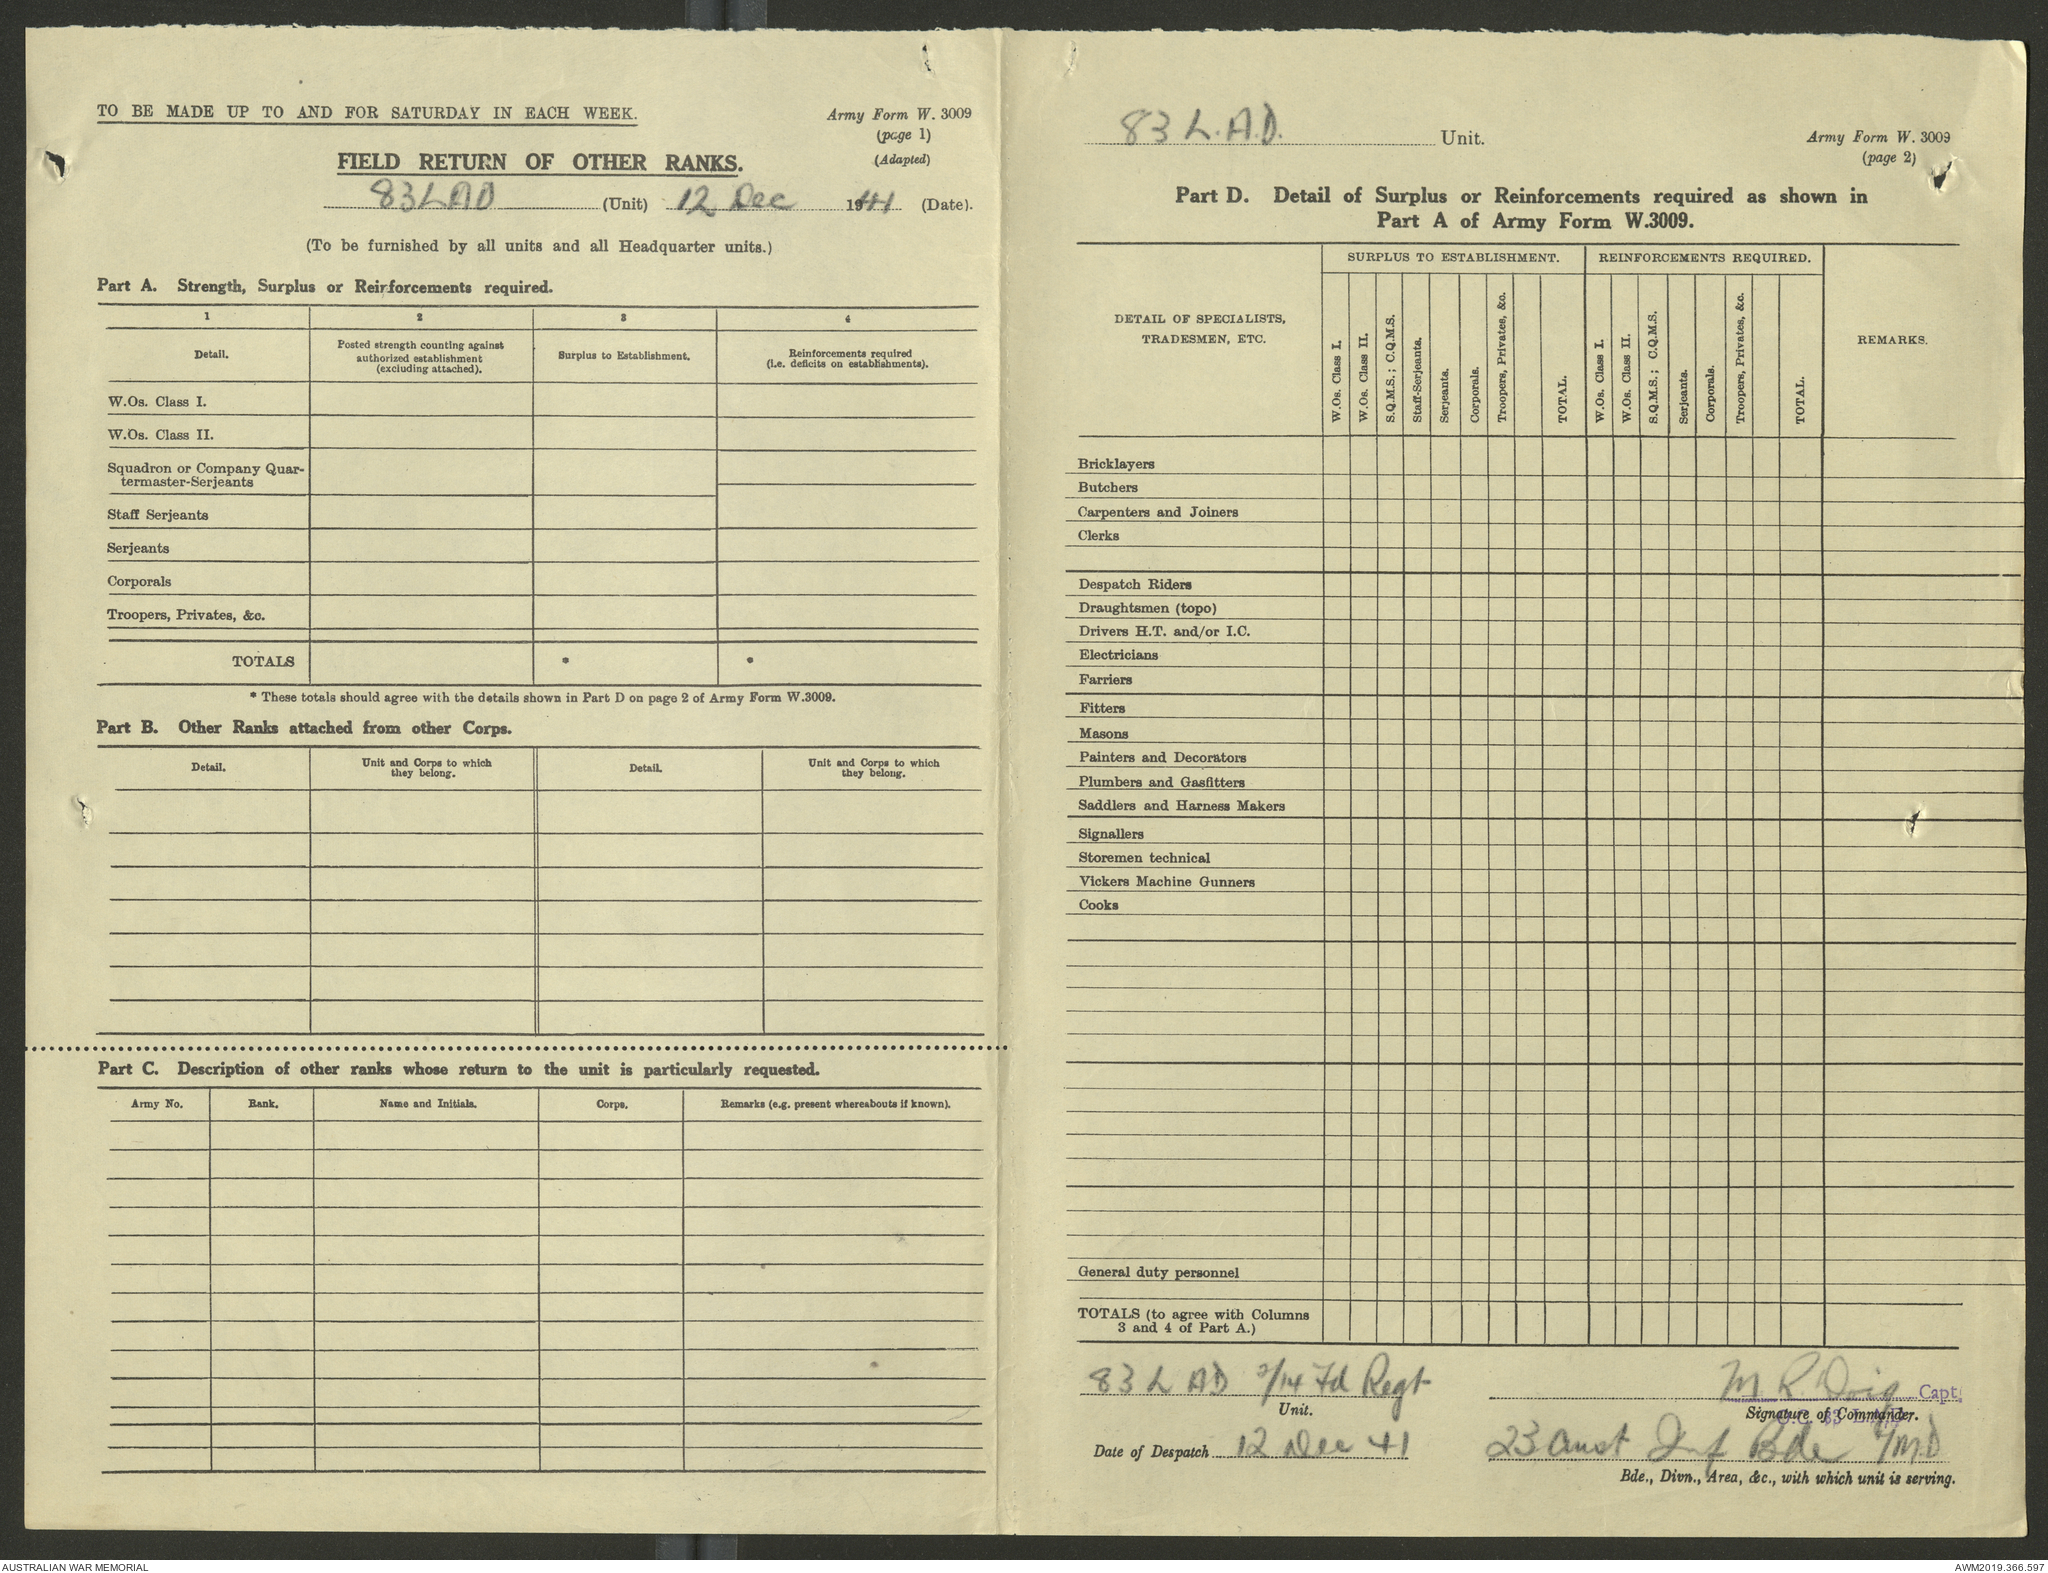 TO BE MADE UP TO AND FOR SATURDAY IN EACH WEEK.
Army Form W. 3009
(page 1)
(Adapted)
FIELD RETURN OF OTHER RANKS.
83 LAD (Unit) 12 Dec 1941 (Date).
(To be furnished by all units and all Headquarter units.)
Part A. Strength, Surplus or Reinforcements required.
1 2 3 4
Detail.
Posted strength counting against
authorized establishment
(excluding attached).
Surplus to Establishment.
Reinforcements required
(i.e. deficits on establishments).
W.Os. Class I.
W.Os. Class II.
Squadron or Company Quar-
termaster-Serjeants
Staff Serjeants
Serjeants
Corporals
Troopers, Privates, &c.
TOTALS * *
* These totals should agree with the details shown in Part D on page 2 of Army Form W.3009.
Part B. Other Ranks attached from other Corps.
Detail.
Unit and Corps to which
they belong.
Detail.
Unit and Corps to which
they belong.
Part C. Description of other ranks whose return to the unit is particularly requested.
Army No. Rank. Name and Initials. Corps. Remarks (e.g. present whereabouts if known).
83 L.A.D. Unit.
Army Form W. 3009
(page 2)
Part D. Detail of Surplus or Reinforcements required as shown in
Part A of Army Form W.3009.
DETAIL OF SPECIALISTS,
TRADESMEN, ETC.
SURPLUS TO ESTABLISHMENT.
W.Os. Class I.
W.Os. Class II.
S.Q.M.S.; C.Q.M.S.
Staff-Serjeants.
Serjeants.
Corporals.
Troopers, Privates, &c.
TOTAL.
REINFORCEMENTS REQUIRED.
W.Os. Class I.
W.Os. Class II.
S.Q.M.S.; C.Q.M.S.
Serjeants.
Corporals.
Troopers, Privates, &c.
TOTAL.
REMARKS.
Bricklayers
Butchers
Carpenters and Joiners
Clerks
Despatch Riders
Draughtsmen (topo)
Drivers H.T. and/or I.C.
Electricians
Farriers
Fitters
Masons
Painters and Decorators
Plumbers and Gasfitters
Saddlers and Harness Makers
Signallers
Storemen technical
Vickers Machine Gunners
Cooks
General duty personnel
TOTALS (to agree with Columns
3 and 4 of Part A.)
83 L AD 2/14 Fd Regt
Unit.
M. R. Doig Capt
Signature of Commander.
O.C. 83 L.A.D.
Date of Despatch 12 Dec 41
23 Aust Inf Bde 7/MD
Bde., Divn., Area, &c., with which unit is serving.
AUSTRALIAN WAR MEMORIAL
AWM2019.366.597